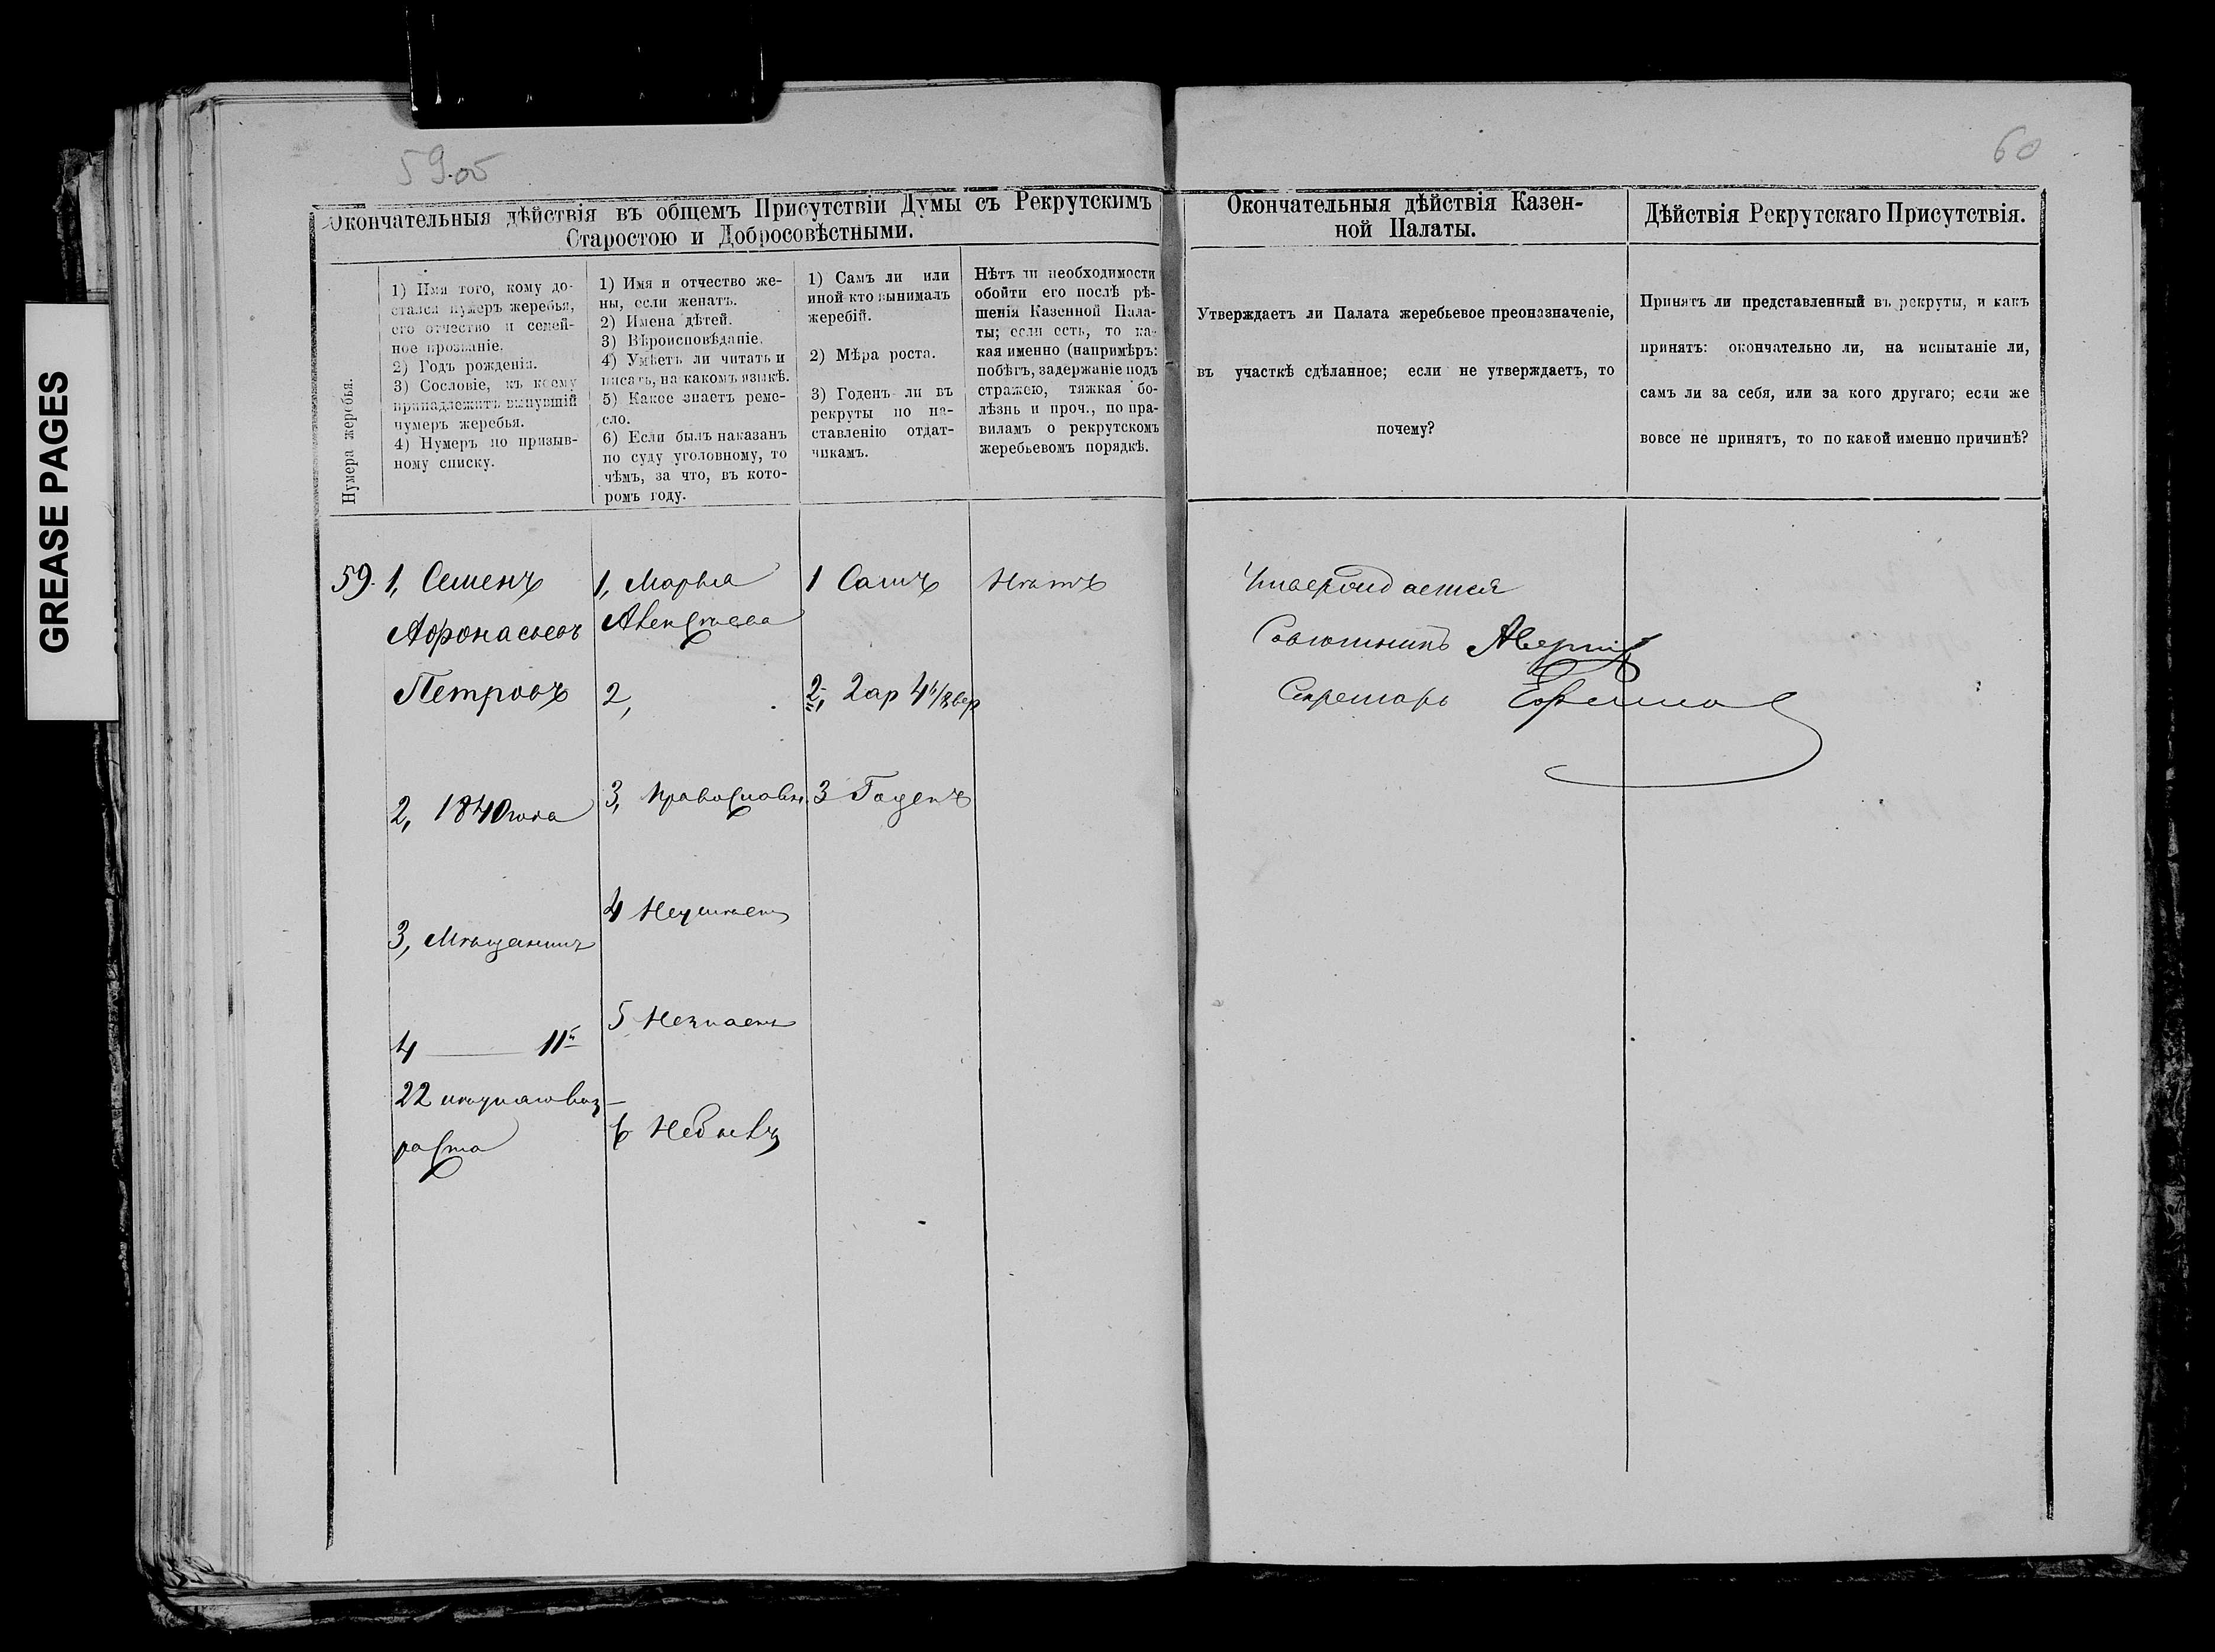 GREASE PAGES
59об
60
Окончательныя дѣйствія въ общемъ Присутствіи Думы съ Рекрутскимъ
Старостою и Добросовѣстными.
Нумера жеребья.
1) Имя того, кому до-
стался нумеръ жеребья,
его отчество и семей-
ное прозваніе.
2) Годъ рожденія.
3) Сословіе, къ коему
принадлежитъ вынувшій
нумеръ жеребья.
4) Нумеръ по призыв-
ному списку.
1) Имя и отчество же-
ны, если женатъ.
2) Имена дѣтей.
3) Вѣроисповѣданіе.
4) Умѣетъ ли читать и
писать, на какомъ языкѣ.
5) Какое знаетъ реме-
сло.
6) Если былъ наказанъ
по суду уголовному, то
чѣмъ, за что, въ кото-
ромъ году.
1) Самъ ли или
иной кто вынималъ
жеребій.
2) Мѣра роста.
3) Годенъ ли въ
рекруты по на-
ставленію отдат-
чикамъ.
Нѣтъ ли необходимости
обойти его послѣ рѣ-
шенія Казенной Пала-
ты; если есть, то ка-
кая именно (напримѣръ:
побѣгъ, задержаніе подъ
стражею, тяжкая бо-
лѣзнь и проч., по пра-
виламъ о рекрутскомъ
жеребьевомъ порядкѣ.
59.
1, Семенъ
Афонасьевъ
Петровъ
2, 1840 года
3, Мѣщанинъ
4 — 11й
22 воз-
раста
1, Марья
Алексѣева
2,
3, Православн.
4 Неумѣетъ
5 Незнаетъ
6 Небылъ
1 Самъ
2, 2 ар 4 4/8 вер
3 Годенъ
Нѣтъ
Окончательныя дѣйствія Казен-
ной Палаты.
Утверждаетъ ли Палата жеребьевое преоназначеніе,
въ участкѣ сдѣланное; если не утверждаетъ, то
почему?
Утверждается
Совѣтникъ
Секретарь
Дѣйствія Рекрутскаго Присутствія.
Принятъ ли представленный въ рекруты, и какъ
принятъ: окончательно ли, на испытаніе ли,
самъ ли за себя, или за кого другаго; если же
вовсе не принятъ, то по какой именно причинѣ?